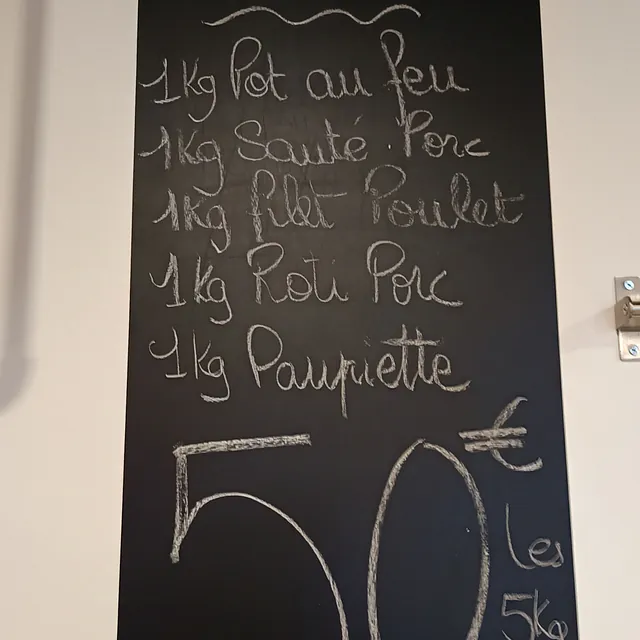 1Kg Pot au feu
1Kg Sauté Porc
1Kg filet Poulet
1Kg Roti Porc
1Kg Paupiette
50 €
les
5Kg